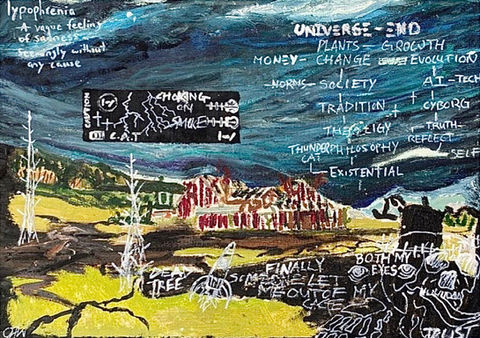 lypophrenia
A vague feeling
of sadness
seemingly without
any cause
UNIVERSE - END
PLANTS - GROWTH
MONEY - CHANGE EVOLUTION
NORMS - SOCIETY A.I - TECH
TRADITION CYBORG
THEOLOGY TRUTH
REFLECT
THUNDER PHILOSOPHY
CAT
SELF
EXISTENTIAL
CHOKING
ON
SMOKE
DEAD
TREE
FINALLY
SOMEONE LET
ME OUT OF MY
CAGE
BOTH MY
EYES